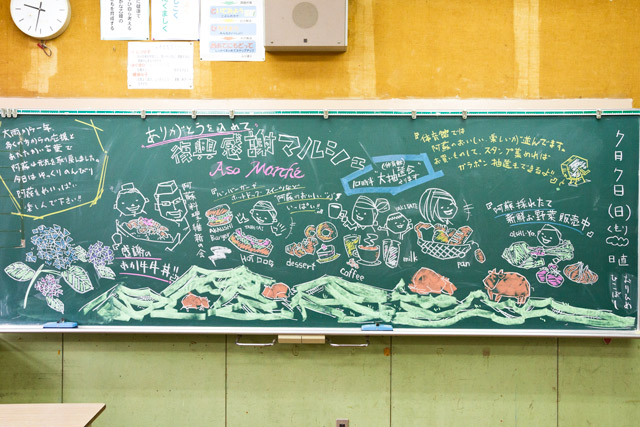 大雨から一年
多くの方からの応援と
あたたかい言葉で
阿蘇は元気を取り戻しました。
今日はゆっくりのんびり
阿蘇をいっぱい
楽しんで下さい!!
ありがとうを込めて
復興感謝マルシェ
Aso Marché
(体育館)
大抽選会
します
『体育館では
阿蘇のおいしい、楽しいが並んでます。
お買いものして、スタンプ集めれば
ガラポン抽選もできるよ!!』
7月7日(日)
日直
おりひめ
ひこぼし
感謝の
あか牛丼!!
阿蘇の味維新の会
『ハンバーガーや
ホットドック、スイーツなど
阿蘇のおいしいが
いっぱい!!』
HOT DOG
dessert
coffee
milk
pan
『阿蘇採れたて
新鮮お野菜販売中』